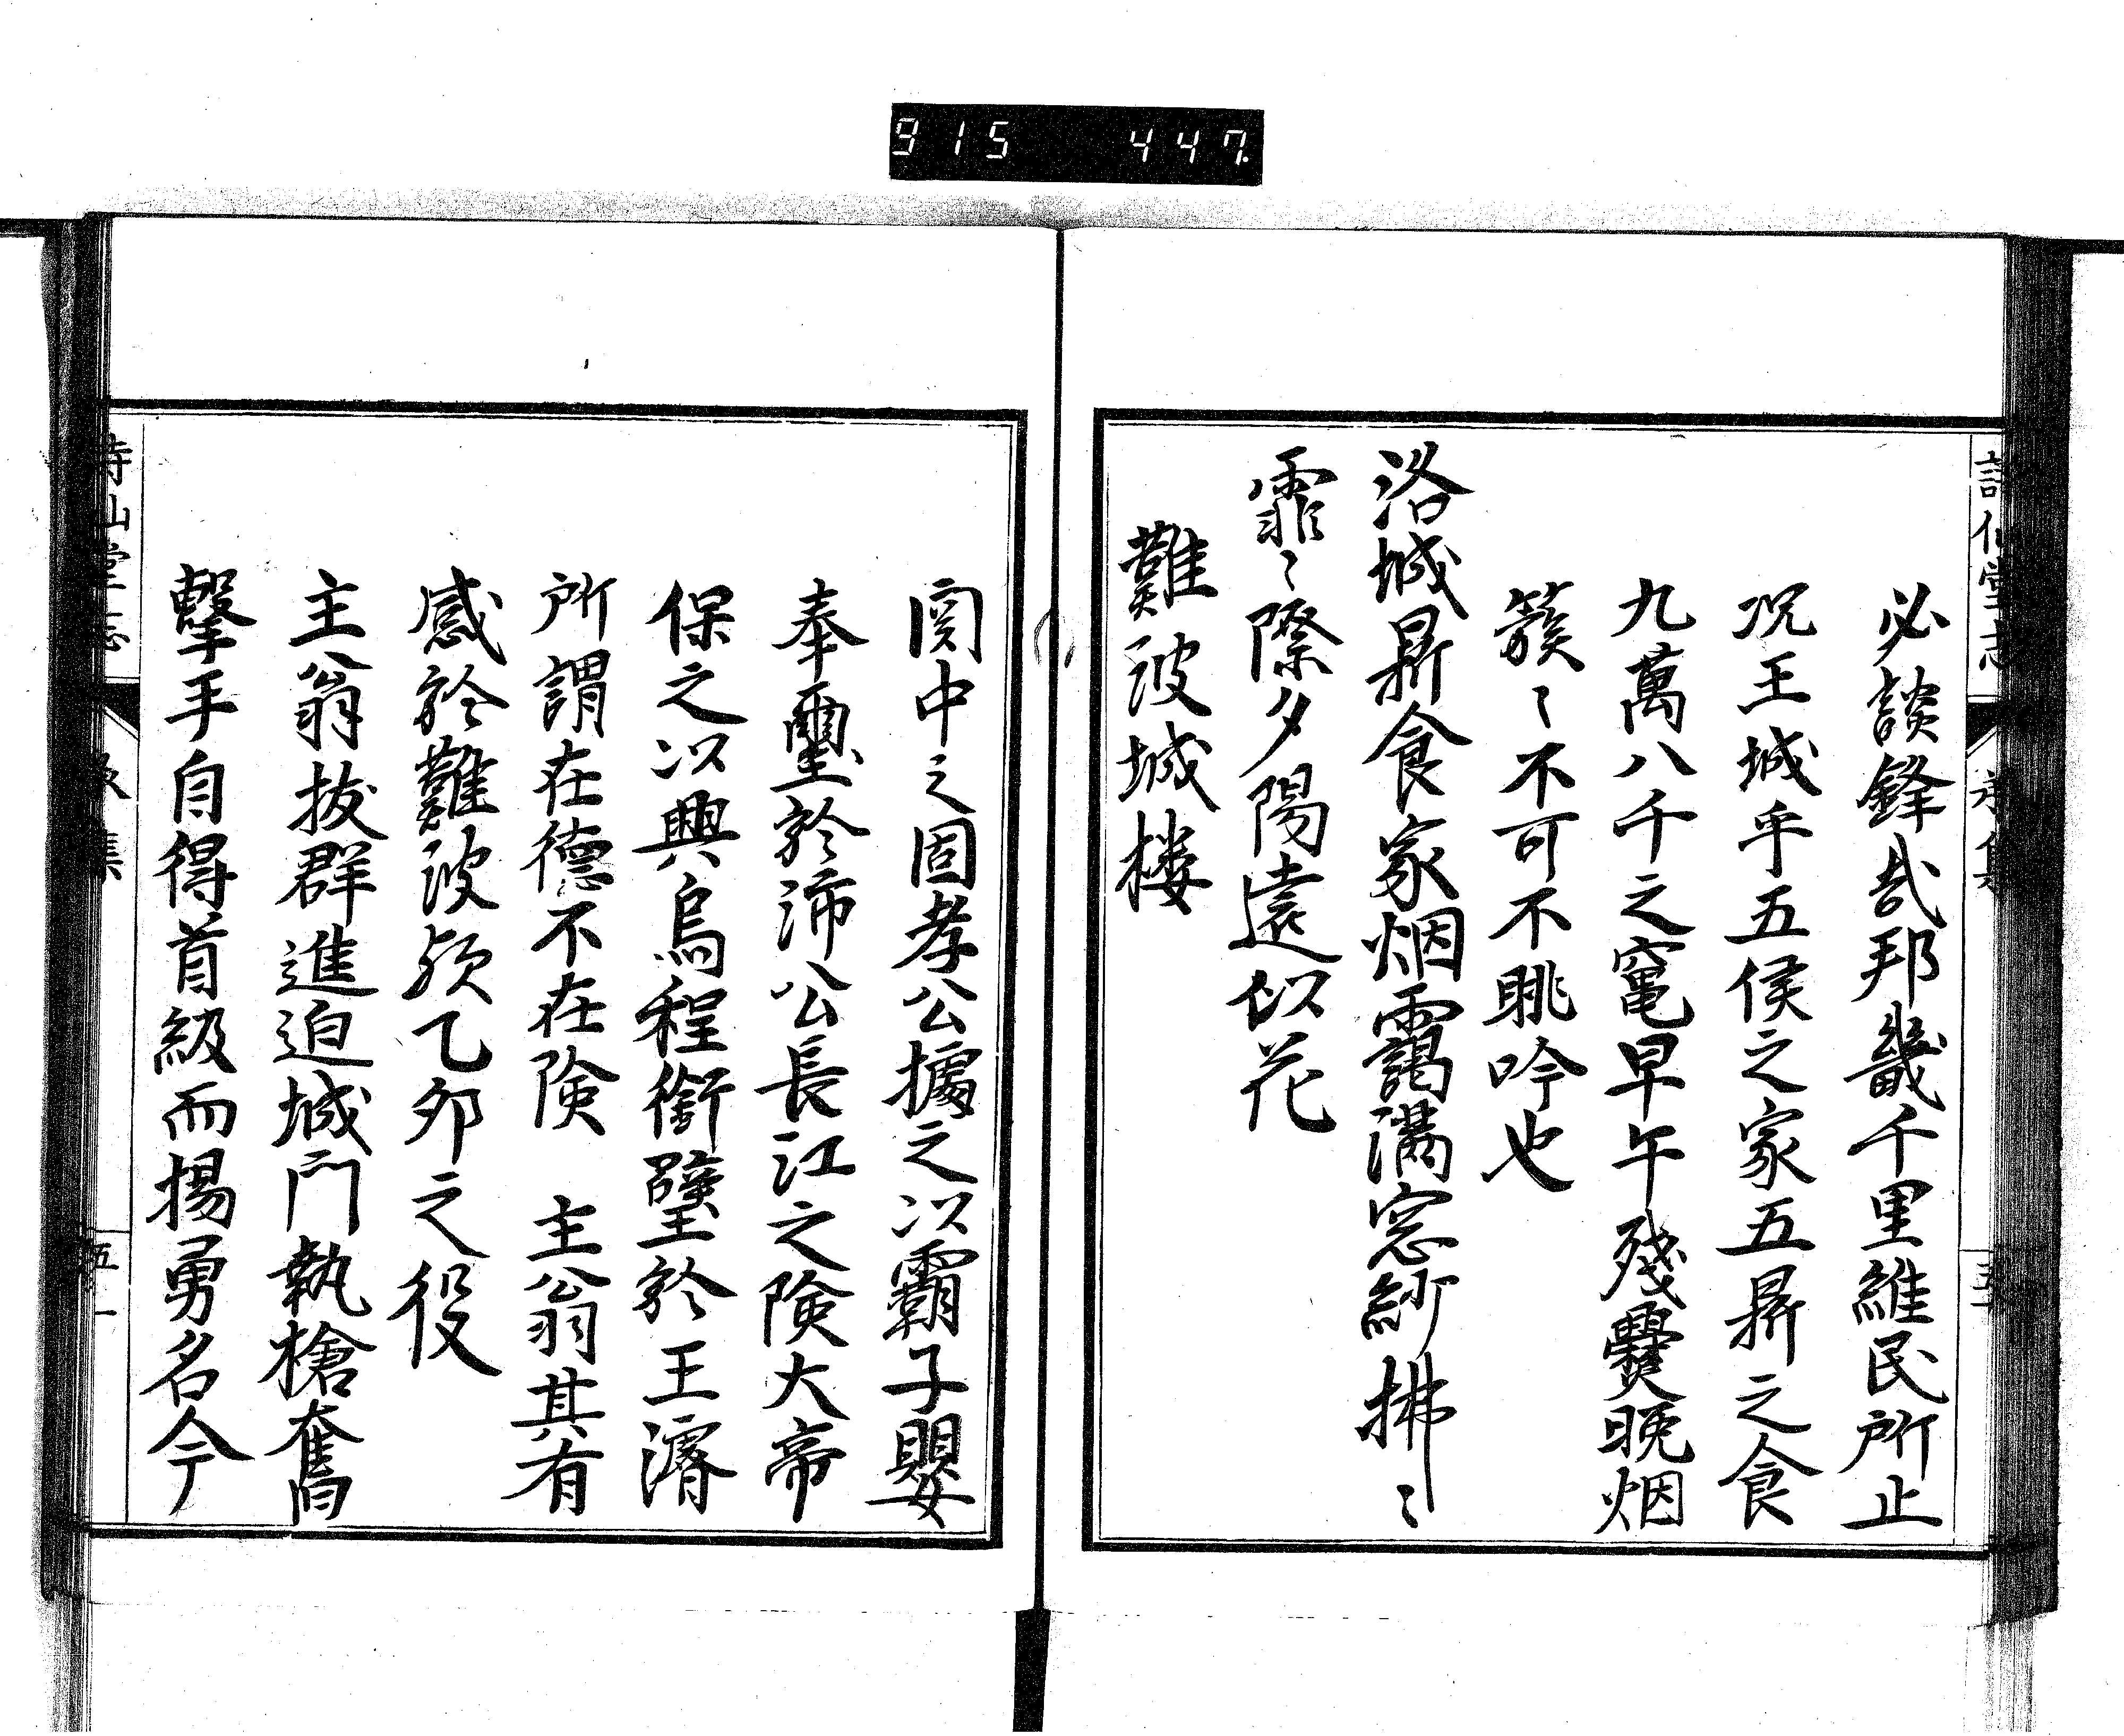 915 447
必談鋒哉邦畿千里維民所止
况王城乎五侯之家五鼎之食
九萬八千之竃早午殘爨晩烟
簇〻不可不眺吟也
洛城鼎食家烟靄滿窓紗拂〻
霏〻際夕陽遠似花
難波城楼
関中之固孝公據之以霸子嬰
奉璽於沛公長江之険大帝
保之以興烏程銜璧於王濬
所謂在德不在険 主翁其有
感於難波欤乙夘之役
主翁拔群進迫城門執槍奮
擊手自得首級而揚勇名今